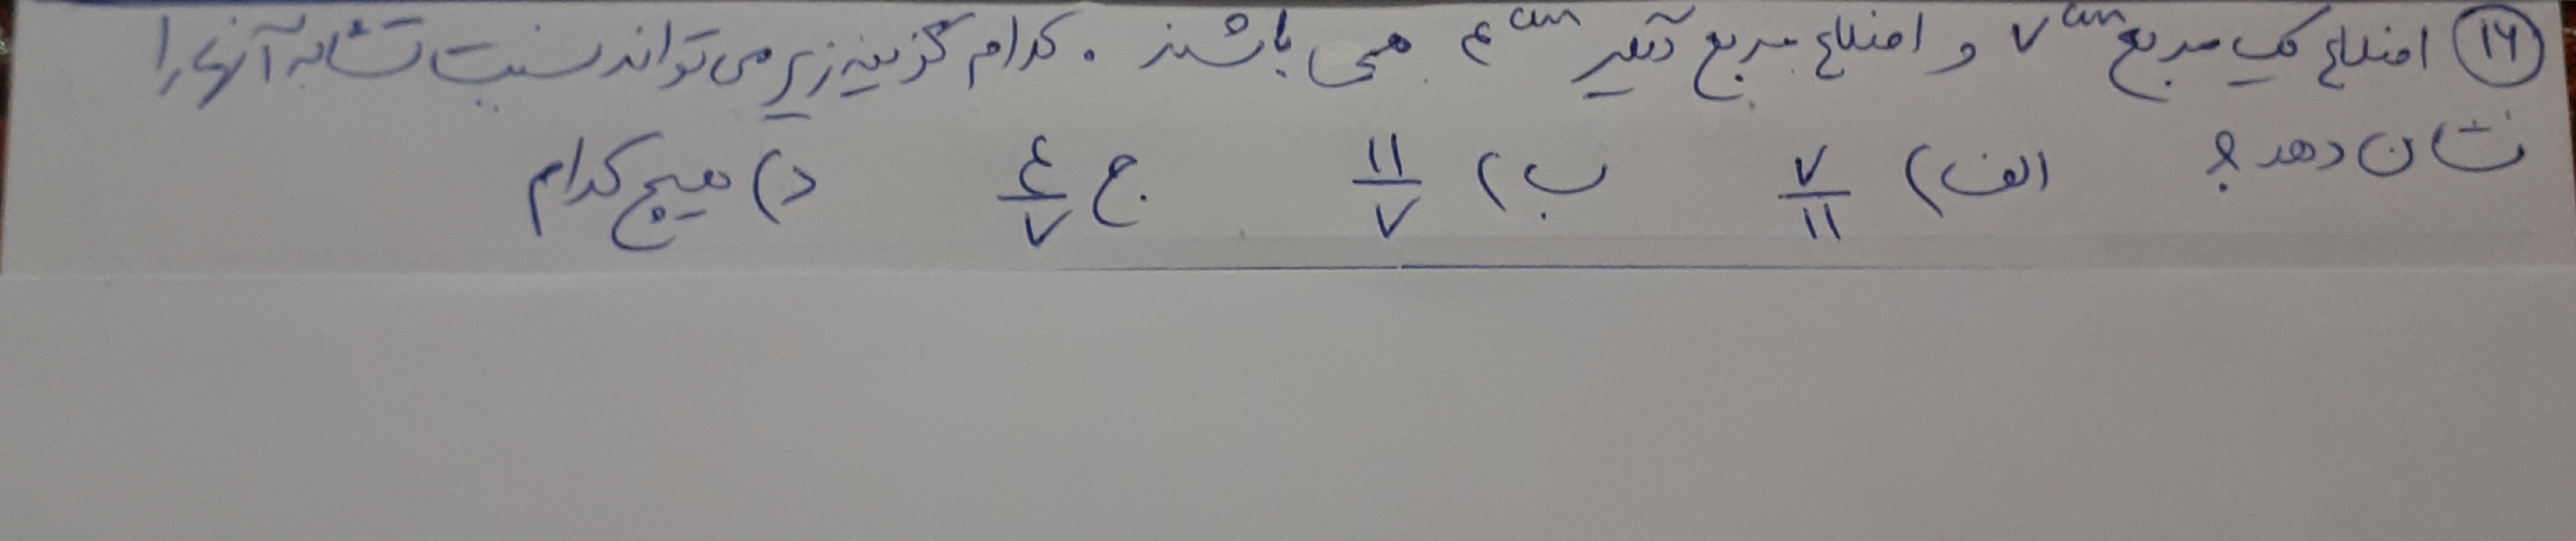 ۱۶ اضلاع یک مربع ۷cm و اضلاع مربع دیگر ۴cm می باشند . کدام گزینه زیر می تواند نسبت تشابه آنها را
نشان دهد ؟ الف) ۷/۱۱ ب) ۱۱/۷ ج ۴/۷ د) هیچ کدام